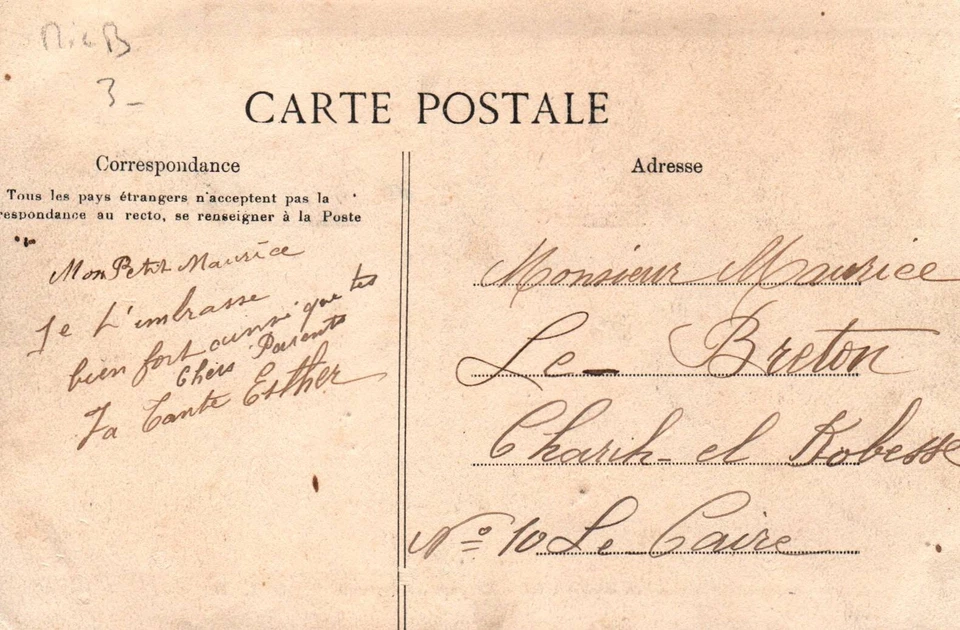 3_
CARTE POSTALE
Correspondance
Tous les pays étrangers n'acceptent pas la
respondance au recto, se renseigner à la Poste
Mon Petit Maurice
Je t'embrasse
bien fort ainsi que tes
Chers Parents
Ta Tante Esther
Adresse
Monsieur Maurice
Le Breton
Charih-el Kobesse
Nº 10 Le Caire